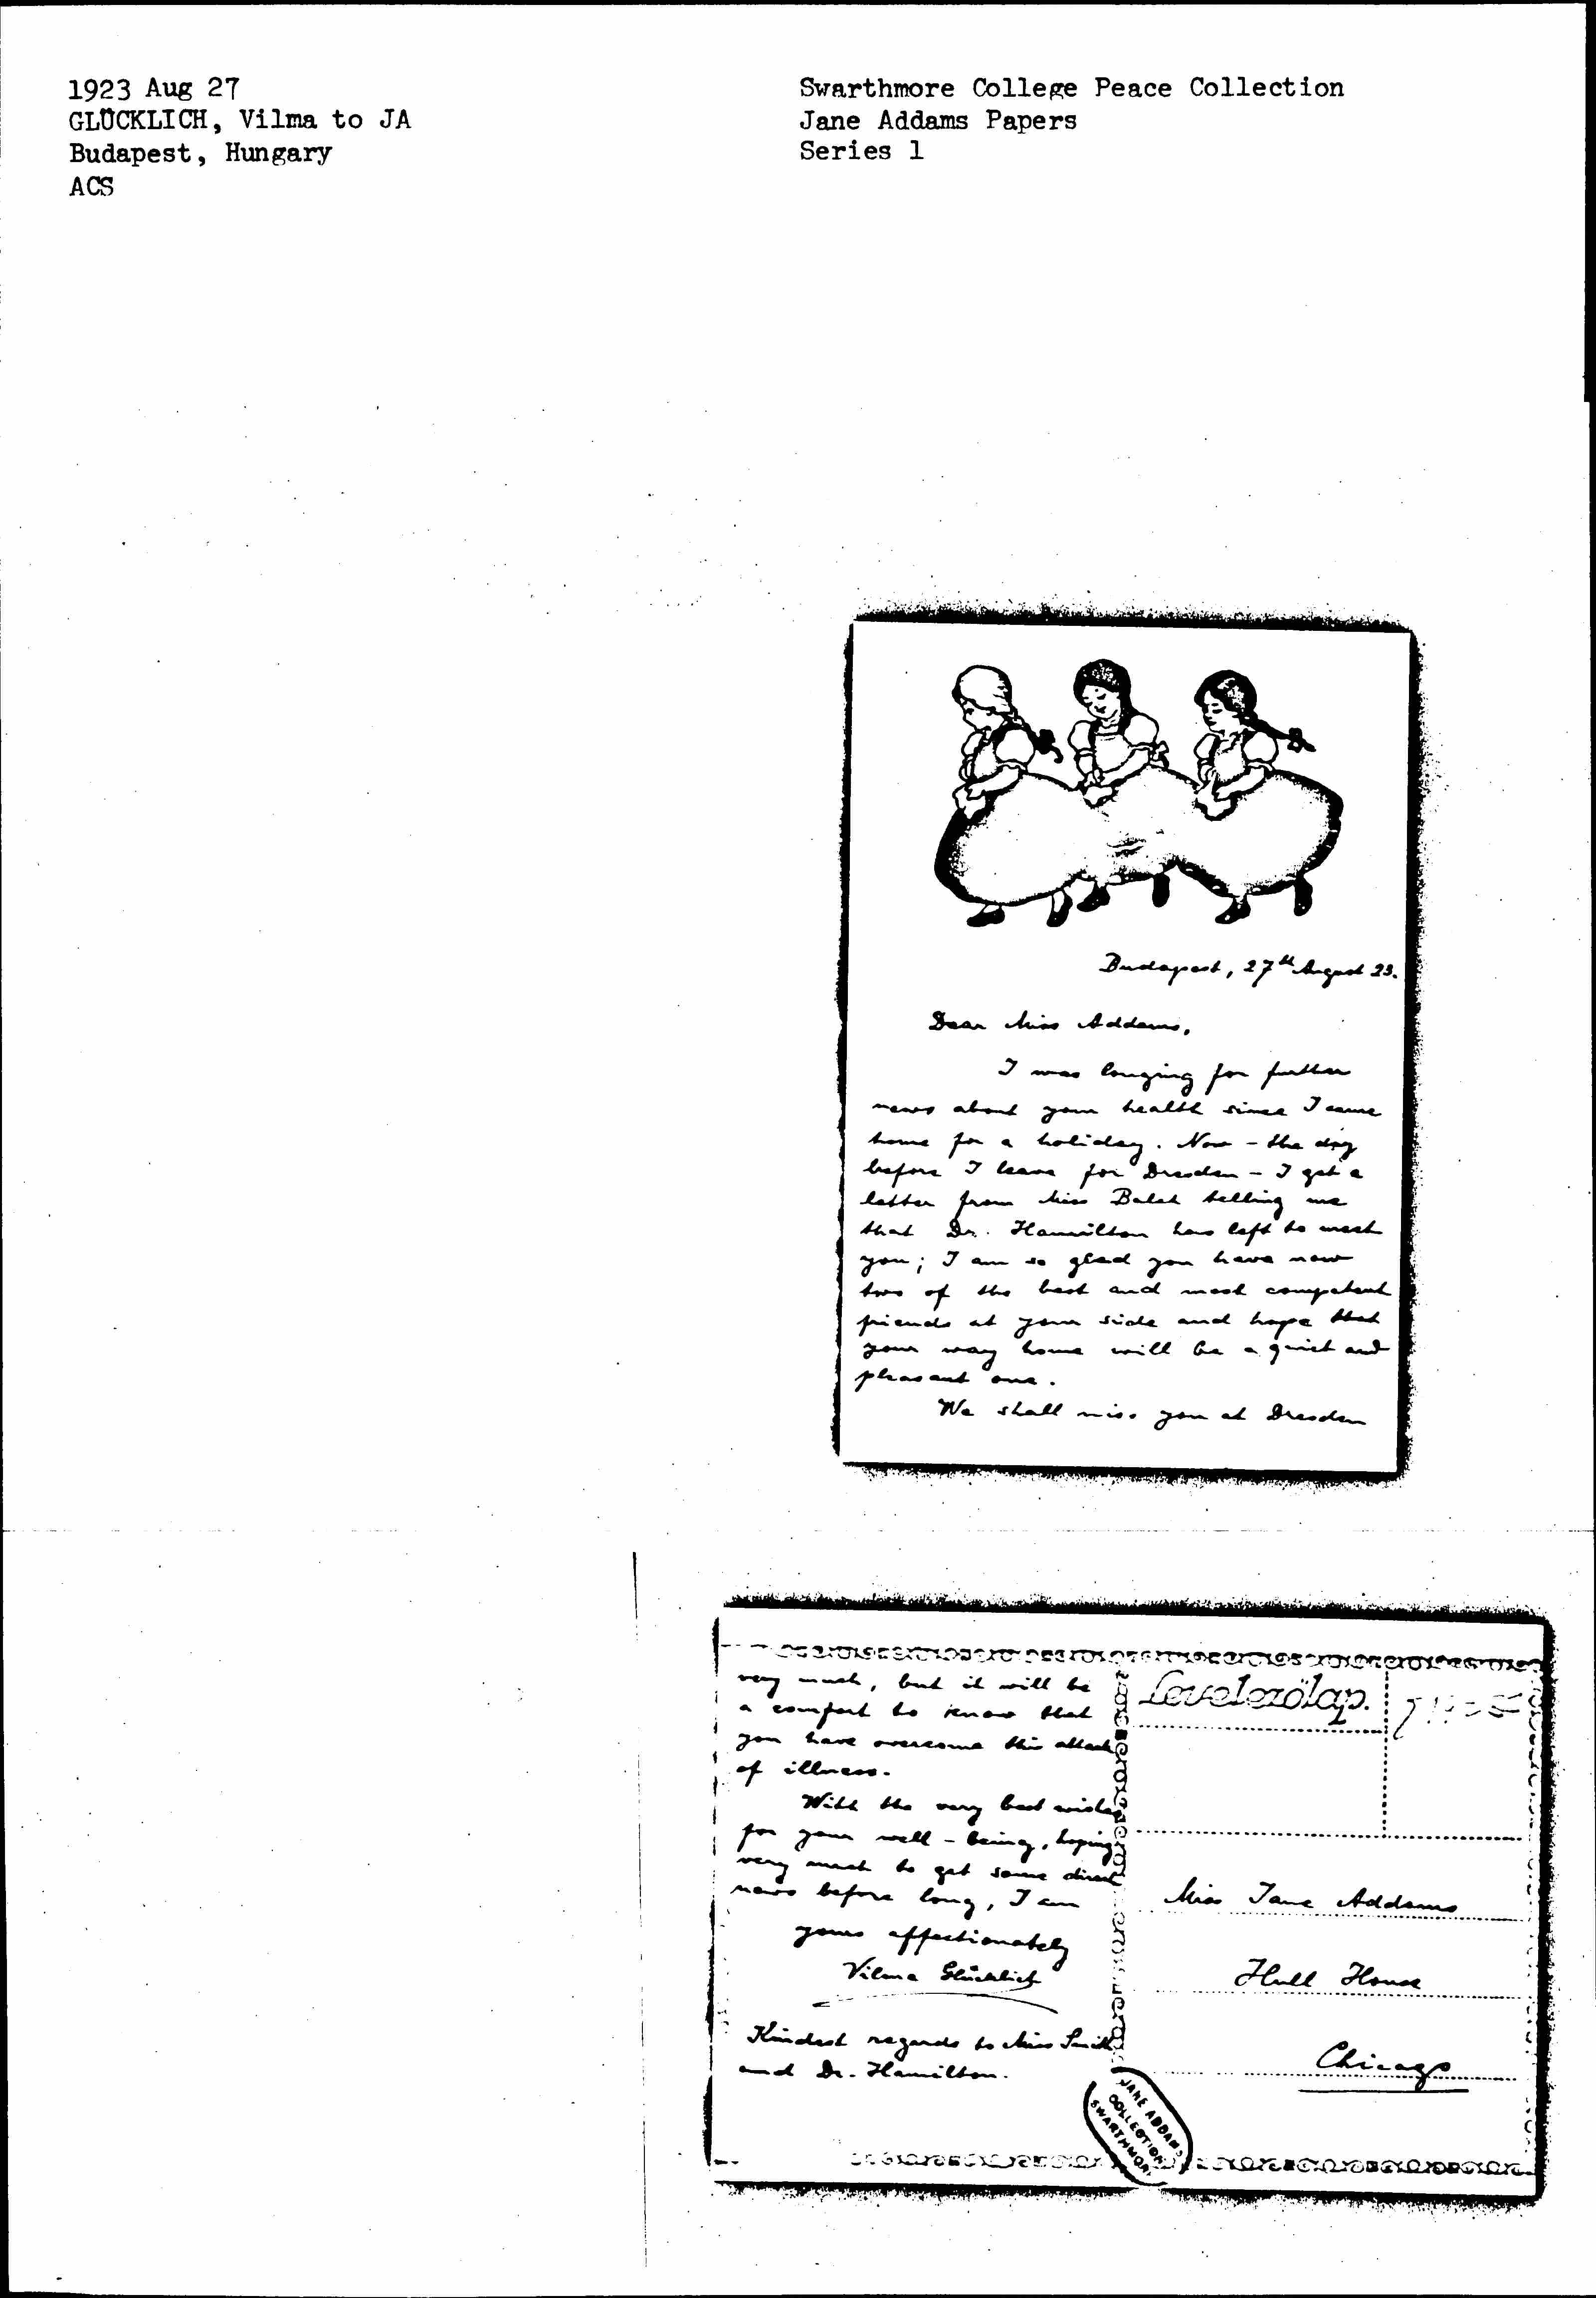 1923 Aug 27
GLÜCKLICH, Vilma to JA
Budapest, Hungary
ACS
Swarthmore College Peace Collection
Jane Addams Papers
Series 1
Budapest, 27th August 23.
Dear Miss Addams,
I was longing for further
news about your health since I came
home for a holiday. Now - the day
before I leave for Dresden - I get a
letter from Miss Balch telling me
that Dr. Hamilton has left to meet
you; I am so glad you have now
two of the best and most competent
friends at your side and hope that
your way home will be a quiet and
pleasant one.
We shall miss you at Dresden
very much, but it will be
a comfort to know that
you have overcome this attack
of illness.
With the very best wishes
for your well-being, hoping
very much to get some direct
news before long, I am
yours affectionately
Vilma Glücklich
Kindest regards to Miss Smith
and Dr. Hamilton.
Levelezőlap.
Miss Jane Addams
Hull House
Chicago
JANE ADDAMS
COLLECTION
SWARTHMORE